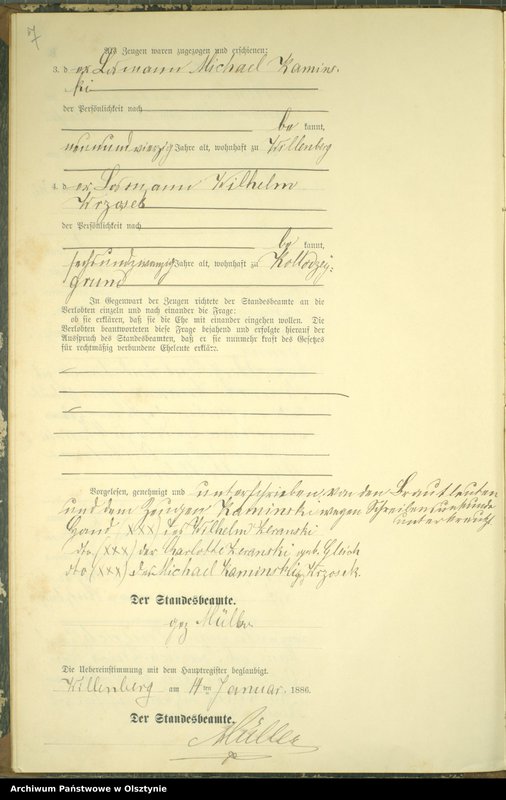 7
Als Zeugen waren zugezogen und erschienen:
3. d er Losmann Michael Kamins-
ki
der Persönlichkeit nach
be kannt,
neunundvierzig Jahre alt, wohnhaft zu Willenberg
4. d er Losmann Wilhelm
Krzossek
der Persönlichkeit nach
be kannt,
sechsundzwanzig Jahre alt, wohnhaft zu Kollodzey-
grund
In Gegenwart der Zeugen richtete der Standesbeamte an die
Verlobten einzeln und nach einander die Frage:
ob sie erklären, daß sie die Ehe mit einander eingehen wollen. Die
Verlobten beantworteten diese Frage bejahend und erfolgte hierauf der
Ausspruch des Standesbeamten, daß er sie nunmehr kraft des Gesetzes
für rechtmäßig verbundene Eheleute erkläre.
Vorgelesen, genehmigt und unterschrieben, von den Brautleuten
und dem Zeugen Kaminski wegen Schreibensunkunde
unterkreuzt
Hand (XXX) des Wilhelm Zeranski
dto (XXX) der Charlotte Zeranski geb. Glich
dto (XXX) des Michael Kaminski Krzosek.
Der Standesbeamte.
gez Müller
Die Uebereinstimmung mit dem Hauptregister beglaubigt.
Willenberg am 4ten Januar 1886.
Der Standesbeamte.
Müller
Archiwum Państwowe w Olsztynie